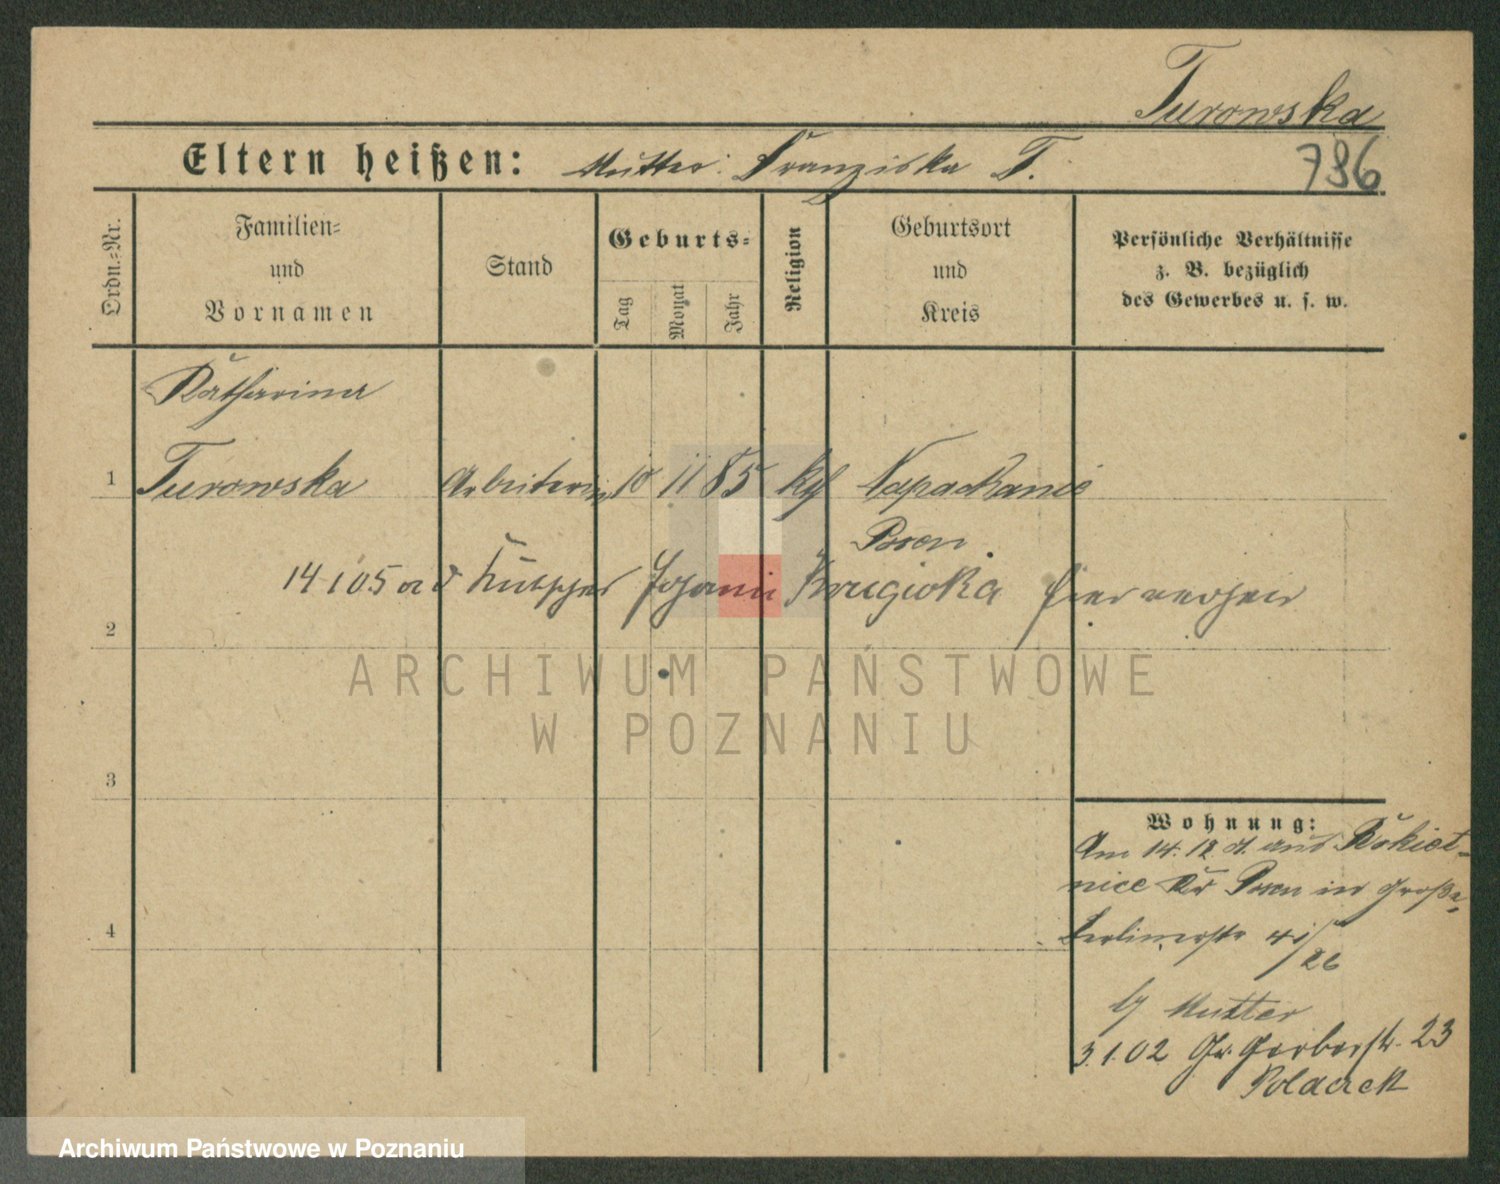 Turowska
Eltern heißen: Mutter: Franziska T.
786
Ordn.-Nr.
Familien-
und
Vornamen
Stand
Geburts-
Tag
Monat
Jahr
Religion
Geburtsort
und
Kreis
Persönliche Verhältnisse
z. B. bezüglich
des Gewerbes u. s. w.
Katharina
1 Turowska Arbeiterin 10 11 85 kth Napachanie
Posen
14 1 05 Kutscher Johann hier
2
3
4
Wohnung:
Am 14. 12. d. aus Rokiet-
nice Kr Posen in Große
Berlinerstr 41/26
Mutter
3.1.02 Gr. Gerberstr. 23
ARCHIWUM PAŃSTWOWE
W POZNANIU
Archiwum Państwowe w Poznaniu